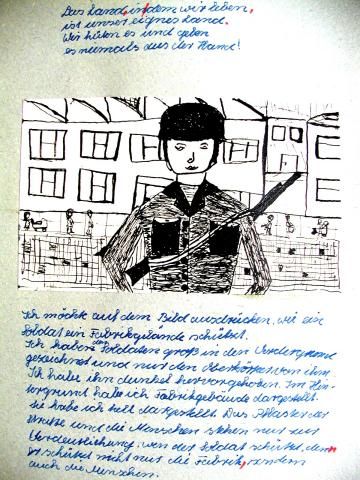 Das Land, in dem wir leben,
ist unser eignes Land.
Wir hüten es und geben
es niemals aus der Hand!
Ich möchte auf dem Bild ausdrücken, wie ein
Soldat ein Fabrikgelände schützt.
Ich habe den Soldaten groß in den Vordergrund
gezeichnet und nur den Oberkörper von ihm.
Ich habe ihn dunkel hervorgehoben. Im Hin-
tergrund habe ich Fabrikgebäude dargestellt.
Sie habe ich hell dargestellt. Das Pflaster der
Straße und die Menschen stehen nur zur
Verdeutlichung, wen der Soldat schützt, denn
er schützt nicht nur die Fabrik, sondern
auch die Menschen.